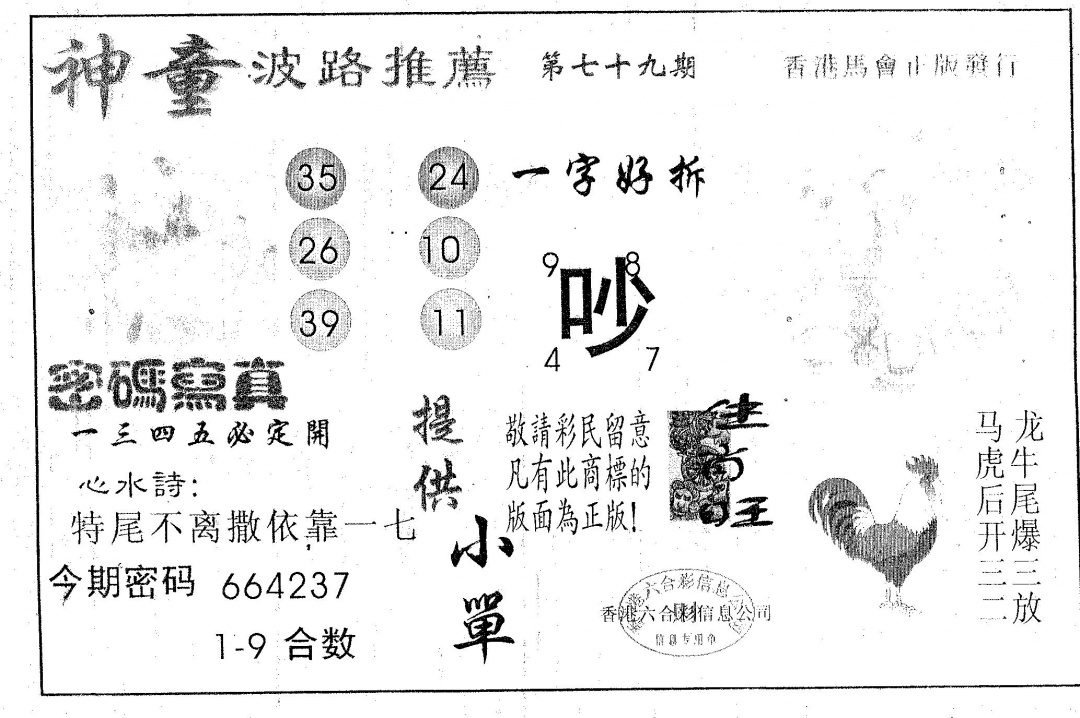 神童波路推薦 第七十九期 香港馬會正版發行
35 24 一字好拆
26 10
39 11
9 8
吵
4 7
密碼寫真
一三四五必定開
心水詩:
特尾不离撒依靠一七
今期密码 664237
1-9 合数
提供
小單
敬請彩民留意
凡有此商標的
版面為正版!
龙牛尾爆三放
马虎后开三二
香港六合彩信息公司
信息专用章